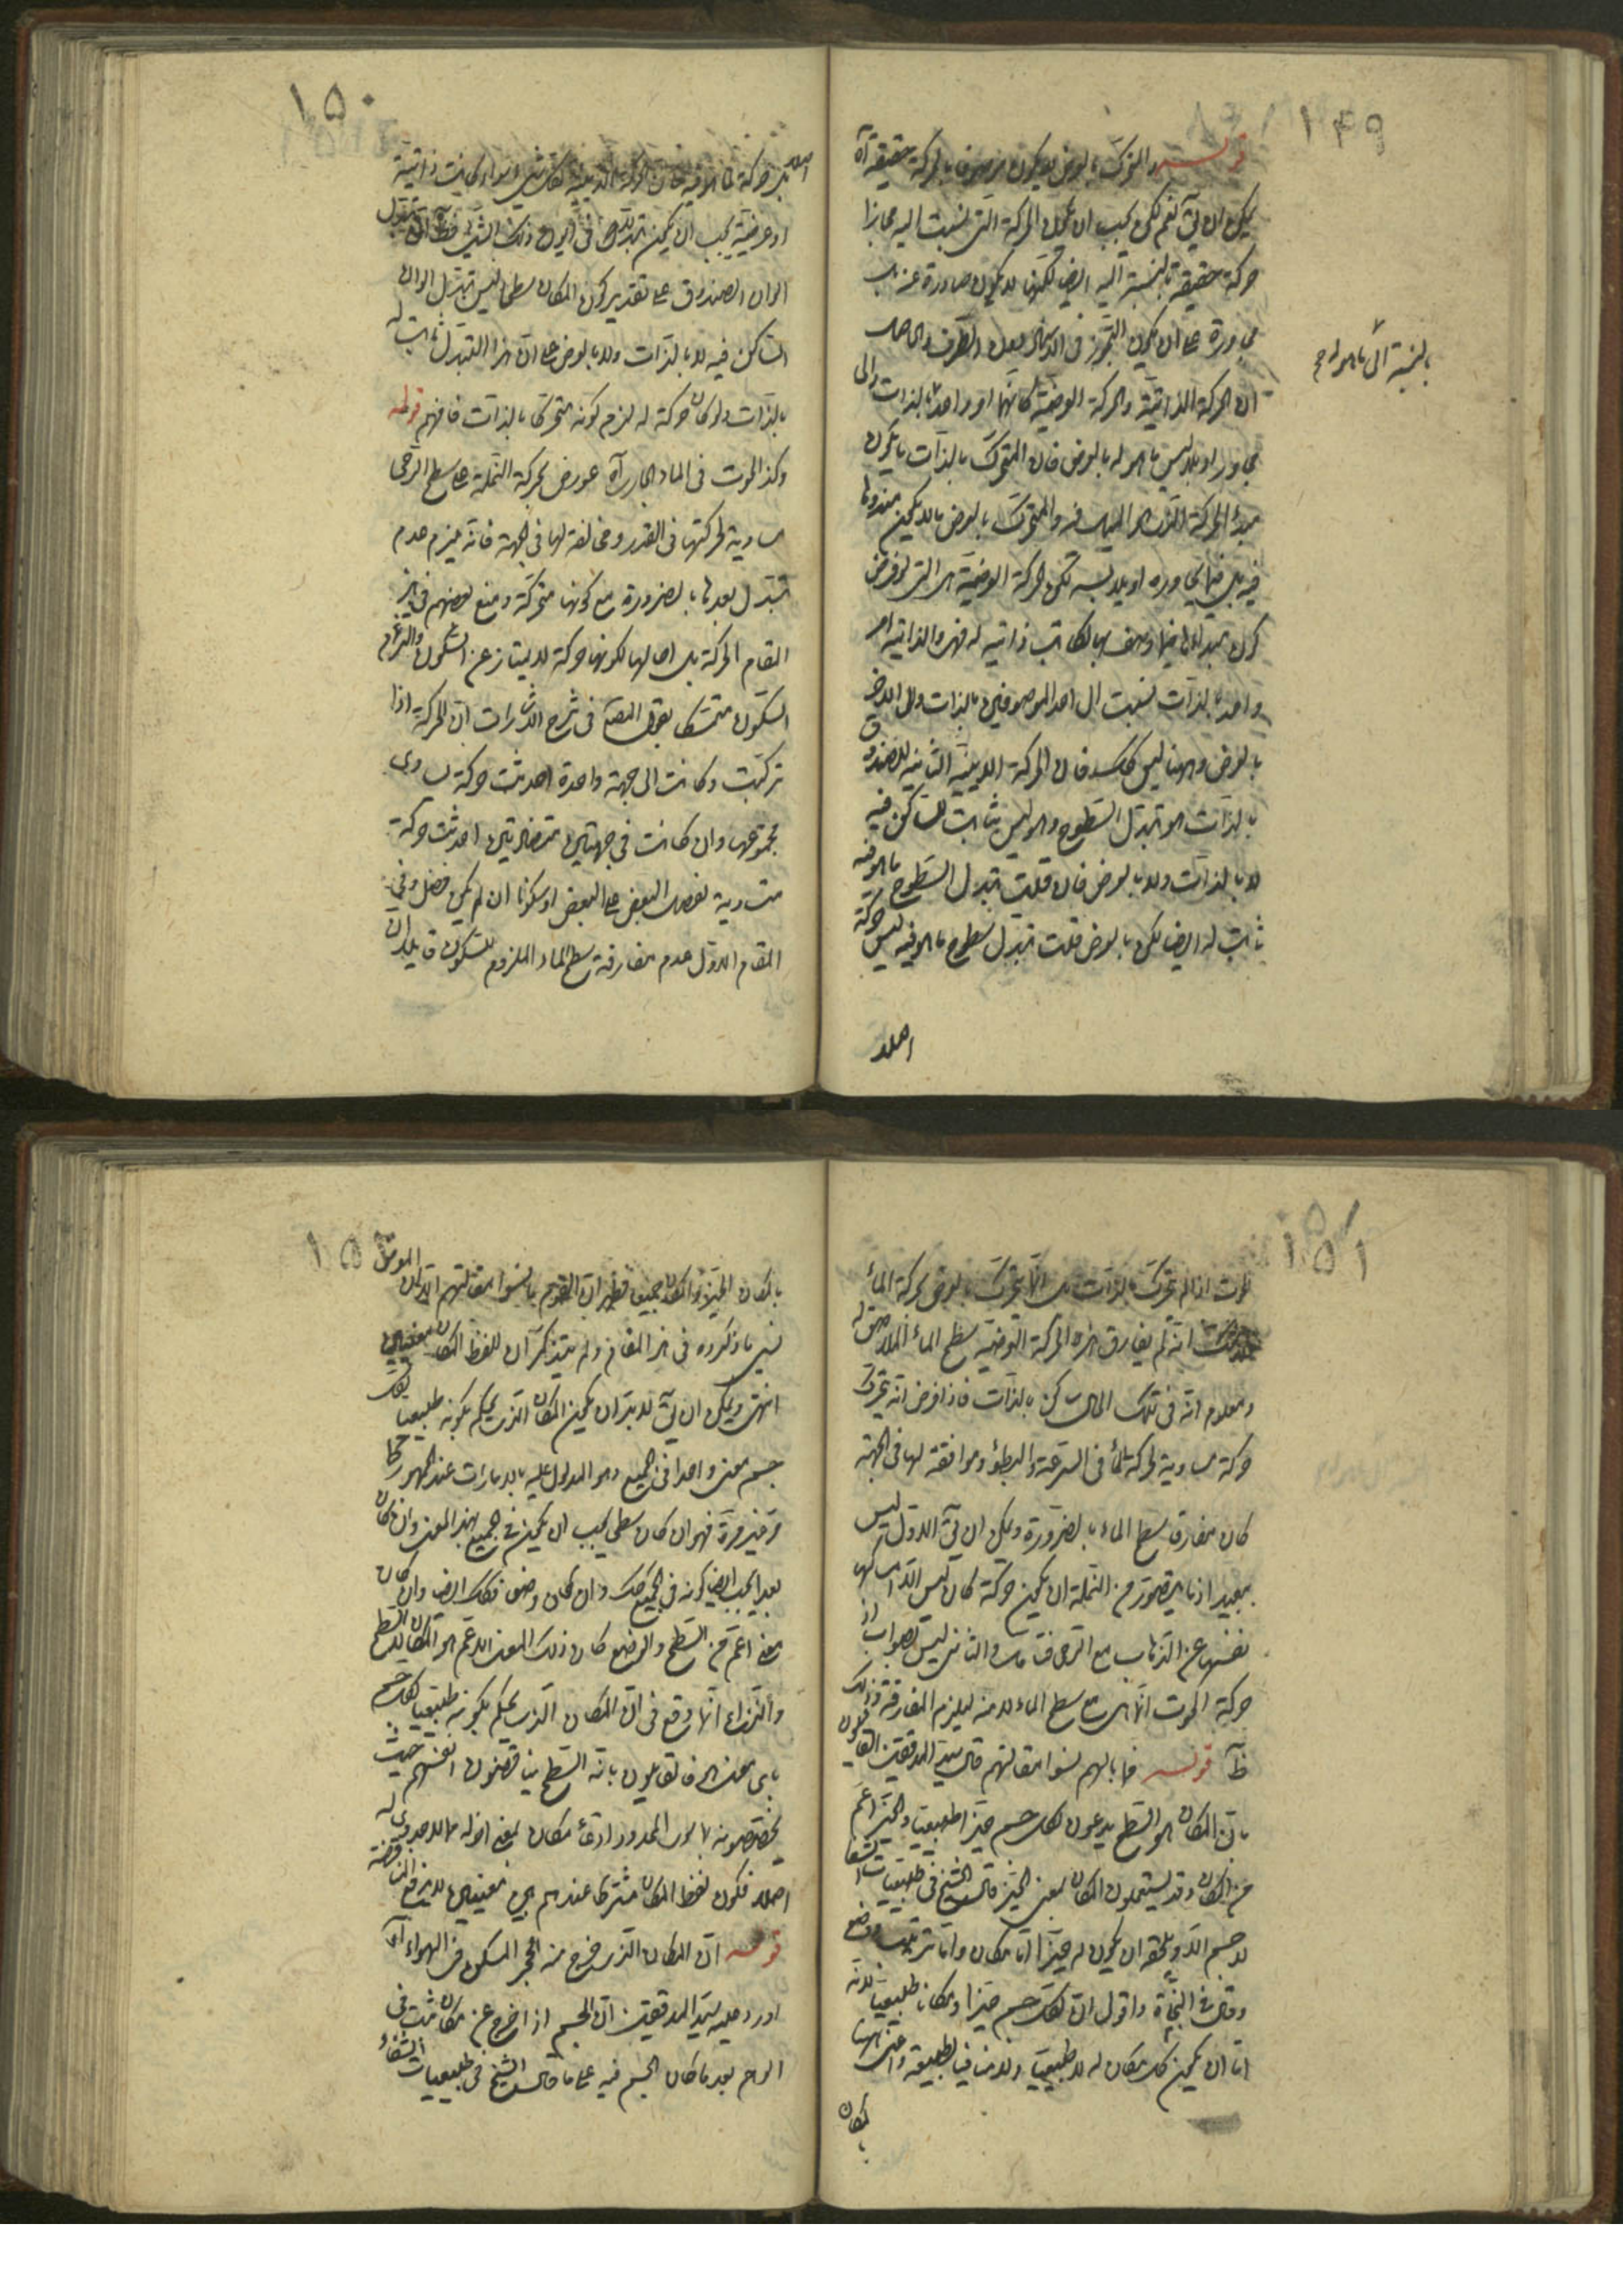 ١٤٩
قوله والمتحرك بالعرض لا يكون موصوفا بالحركة حقيقة آه
يمكن ان يق نعم لكن يجب ان يكون الحركة التي نسبت اليه مجازا
حركة حقيقة بالنسبة اليه ايضا لكنها لا يكون صادرة عنه بل
مجاوره على ان يكون التجوز في الاسناد لا في الطرف والحاصل
ان الحركة الذاتية والحركة العرضية كانهما امر واحد بالذات والى
بالنسبة الى ما هو له
مجاوره او ملابس ما هو له بالعرض فان المتحرك بالذات ما يكون
مبدأ الحركة الذي هو الميل فيه والمتحرك بالعرض ما لا يكون مبدؤها
فيه بل فيما يجاوره او يلابسه لكن الحركة العرضية هي التي لو فرض
كون مبدئها فيما وصف بها لكانت ذاتية له فهي والذاتية امر
واحد بالذات نسبت الى احد الموصوفين بالذات والى الاخر
بالعرض وههنا ليس كك فان الحركة الاينية الثابتة للصندوق
بالذات هو تبدل السطوح وهو ليس بثابت للساكن فيه
لا بالذات ولا بالعرض فان قلت تبدل السطوح ما هو فيه
ثابت له ايضا لكن بالعرض قلت تبدل سطوح ما هو فيه ليس حركة
اصلا
١٥٠
اصلا بل حركة لما هو فيه فان الحركة الاينية لكل شيء سواء كانت ذاتية
او عرضية يجب ان يكون تبدلا في اين ذلك الشيء
الوان الصندوق على تقدير كون المكان سطحا ليس تبدل الوان
الساكن فيه لا بالذات ولا بالعرض على ان هذا التبدل ثابت له
بالذات ولو كان حركة له لزم كونه متحركا بالذات فافهم قوله
وكذا الحوت في الماء الجاري آه عورض بحركة النملة على سطح الرحى
مساوية لحركتها في القدر ومخالفة لها في الجهة فانه يلزم عدم
تبدل بعدها بالضرورة مع كونها متحركة ومنع بعضهم في هذا
المقام الحركة بل احالها لكونها حركة لا يمتاز عن السكون والتزم
السكون متمسكا بقول المصنف في شرح الاشارات ان الحركة اذا
تركبت وكانت الى جهة واحدة احدثت حركة يساوى
مجموعها وان كانت في جهتين متضادتين احدثت حركة
متساوية لفضل البعض على البعض او سكونا ان لم يكن فضل وفي
المقام الاول عدم مفارقة سطح الماء الملزوم للسكون قايلا ان
١٥١
الحوت اذا لم يتحرك بالذات بل انما يتحرك بالعرض بحركة الماء
انه لم يفارق بهذه الحركة العرضية سطح الماء الملاصق له
ومعلوم انه في تلك الحال ساكن بالذات فاذا فرض انه يتحرك
حركة مساوية لحركة الماء في السرعة والبطؤ وموافقة لها في الجهة
كان مفارقا سطح الماء بالضرورة ويمكن ان يق الاول ليس
ببعيد اذ ما يتصور من النملة ان يكون حركة كان ليس الا امساكها
نفسها عن الذهاب مع الرحى فتامل والثاني ليس بصواب اذ
حركة الحوت انما هي مع سطح الماء لا منه ليلزم المفارقة وذلك
ظ قوله فما بالهم نسوا مقالتهم قال سيد المدققين القائلون
بان المكان هو السطح يدعون لكل جسم حيزا طبيعيا والحيز اعم
من المكان وقد يستعملون المكان بمعنى الحيز قال الشيخ في طبيعيات الشفا
لا جسم الا ويلحقه ان يكون له حيز اما مكان واما ترتيب ووضع
وقال في النجاة واقول ان لكل جسم حيزا ومكانا طبيعيا لانه
اما ان يكون كل مكان له لا طبيعيا ولا منافيا لطبيعته واعنى ههنا
بالمكان
١٥٢
بالمكان الحيز والمكان جميعا فظهر ان القوم ما نسوا مقالتهم الا ان المورد
نسي ما ذكروه في هذا المقام ولم يتذكر ان للفظ المكان معنيين
انتهى ويمكن ان يق لا بد ان يكون المكان الذي يحكم بكونه طبيعيا لكل
جسم معنى واحدا في الجميع وهو المدلول عليه بالامارات عند الجمهور كما
مر غير مرة فهو ان كان سطحا يجب ان يكون في الجميع بهذا المعنى وان كان
بعدا يجب ايضا كونه في الجميع كك وان كان وضعا فكك ايضا وان كان
معنى اعم من السطح والوضع كان ذلك المعنى الاعم هو المكان لا السطح
والنزاع انما وقع في ان المكان الذي يحكم بكونه طبيعيا لكل جسم
باى معنى هو فالقائلون بانه السطح يناقضون انفسهم حيث
يخصصونه بما سوى المحدود
اصلا فكون لفظ المكان مشتركا عندهم بين معنيين لا يدفع المناقضة
قوله ان المكان الذي خرج منه الحجر المسكن في الهواء آه
اورد عليه سيد المدققين ان الجسم اذا خرج عن مكان ثبت في
الوهم بعد ما كان الجسم فيه على ما قال الشيخ في طبيعيات الشفاء